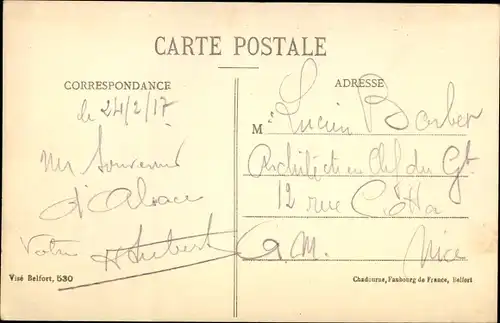 CARTE POSTALE
CORRESPONDANCE
le 24/2/17
un Souvenir
d'Alsace
Votre
Hubert
Visé Belfort, 530
ADRESSE
M Lucien Barbet
Architecte en Chef du Gt
12 rue Cotta
A. M. Nice
Chadourne, Faubourg de France, Belfort